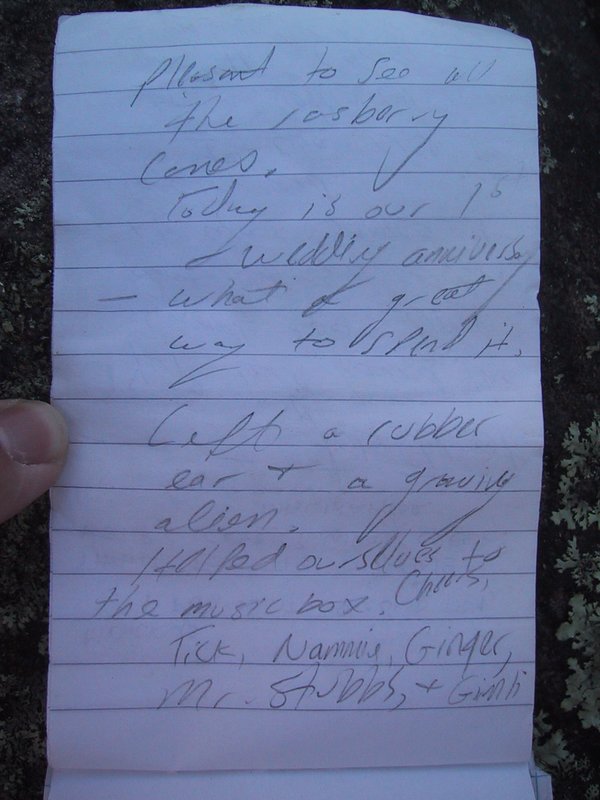 pleasant to see all
the rasberry
canes.
Today is our 1st
wedding anniversary
- what a great
way to spend it.
Left a rubber
ear + a growing
alien.
Helped ourselves to
the music box. Cheers,
Tick, Nammie, Ginger,
Mr. Stubbs, + Gimli